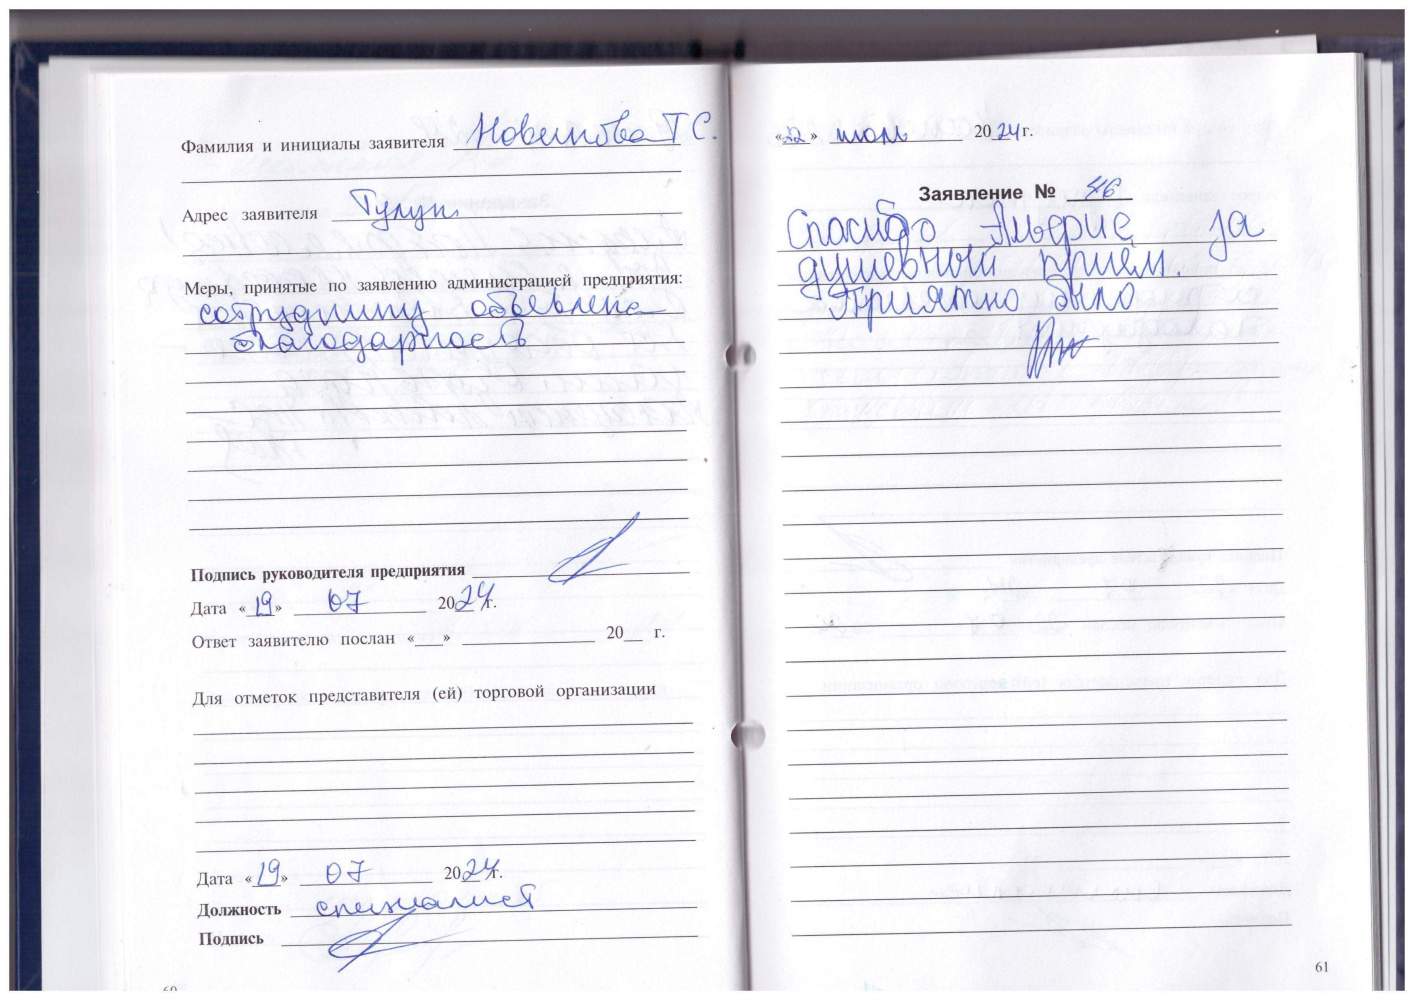 Фамилия и инициалы заявителя Новикова Т С.
Адрес заявителя Тулун.
Меры, принятые по заявлению администрацией предприятия:
сотруднику объевлена
благодарность
Подпись руководителя предприятия
Дата «19» 07 2024 г.
Ответ заявителю послан «___» 20__ г.
Для отметок представителя (ей) торговой организации
Дата «19» 07 2024 г.
Должность специалист
Подпись
60
«22» июль 2024 г.
Заявление № 46
Спасибо за
душевный приём.
Приятно было
61